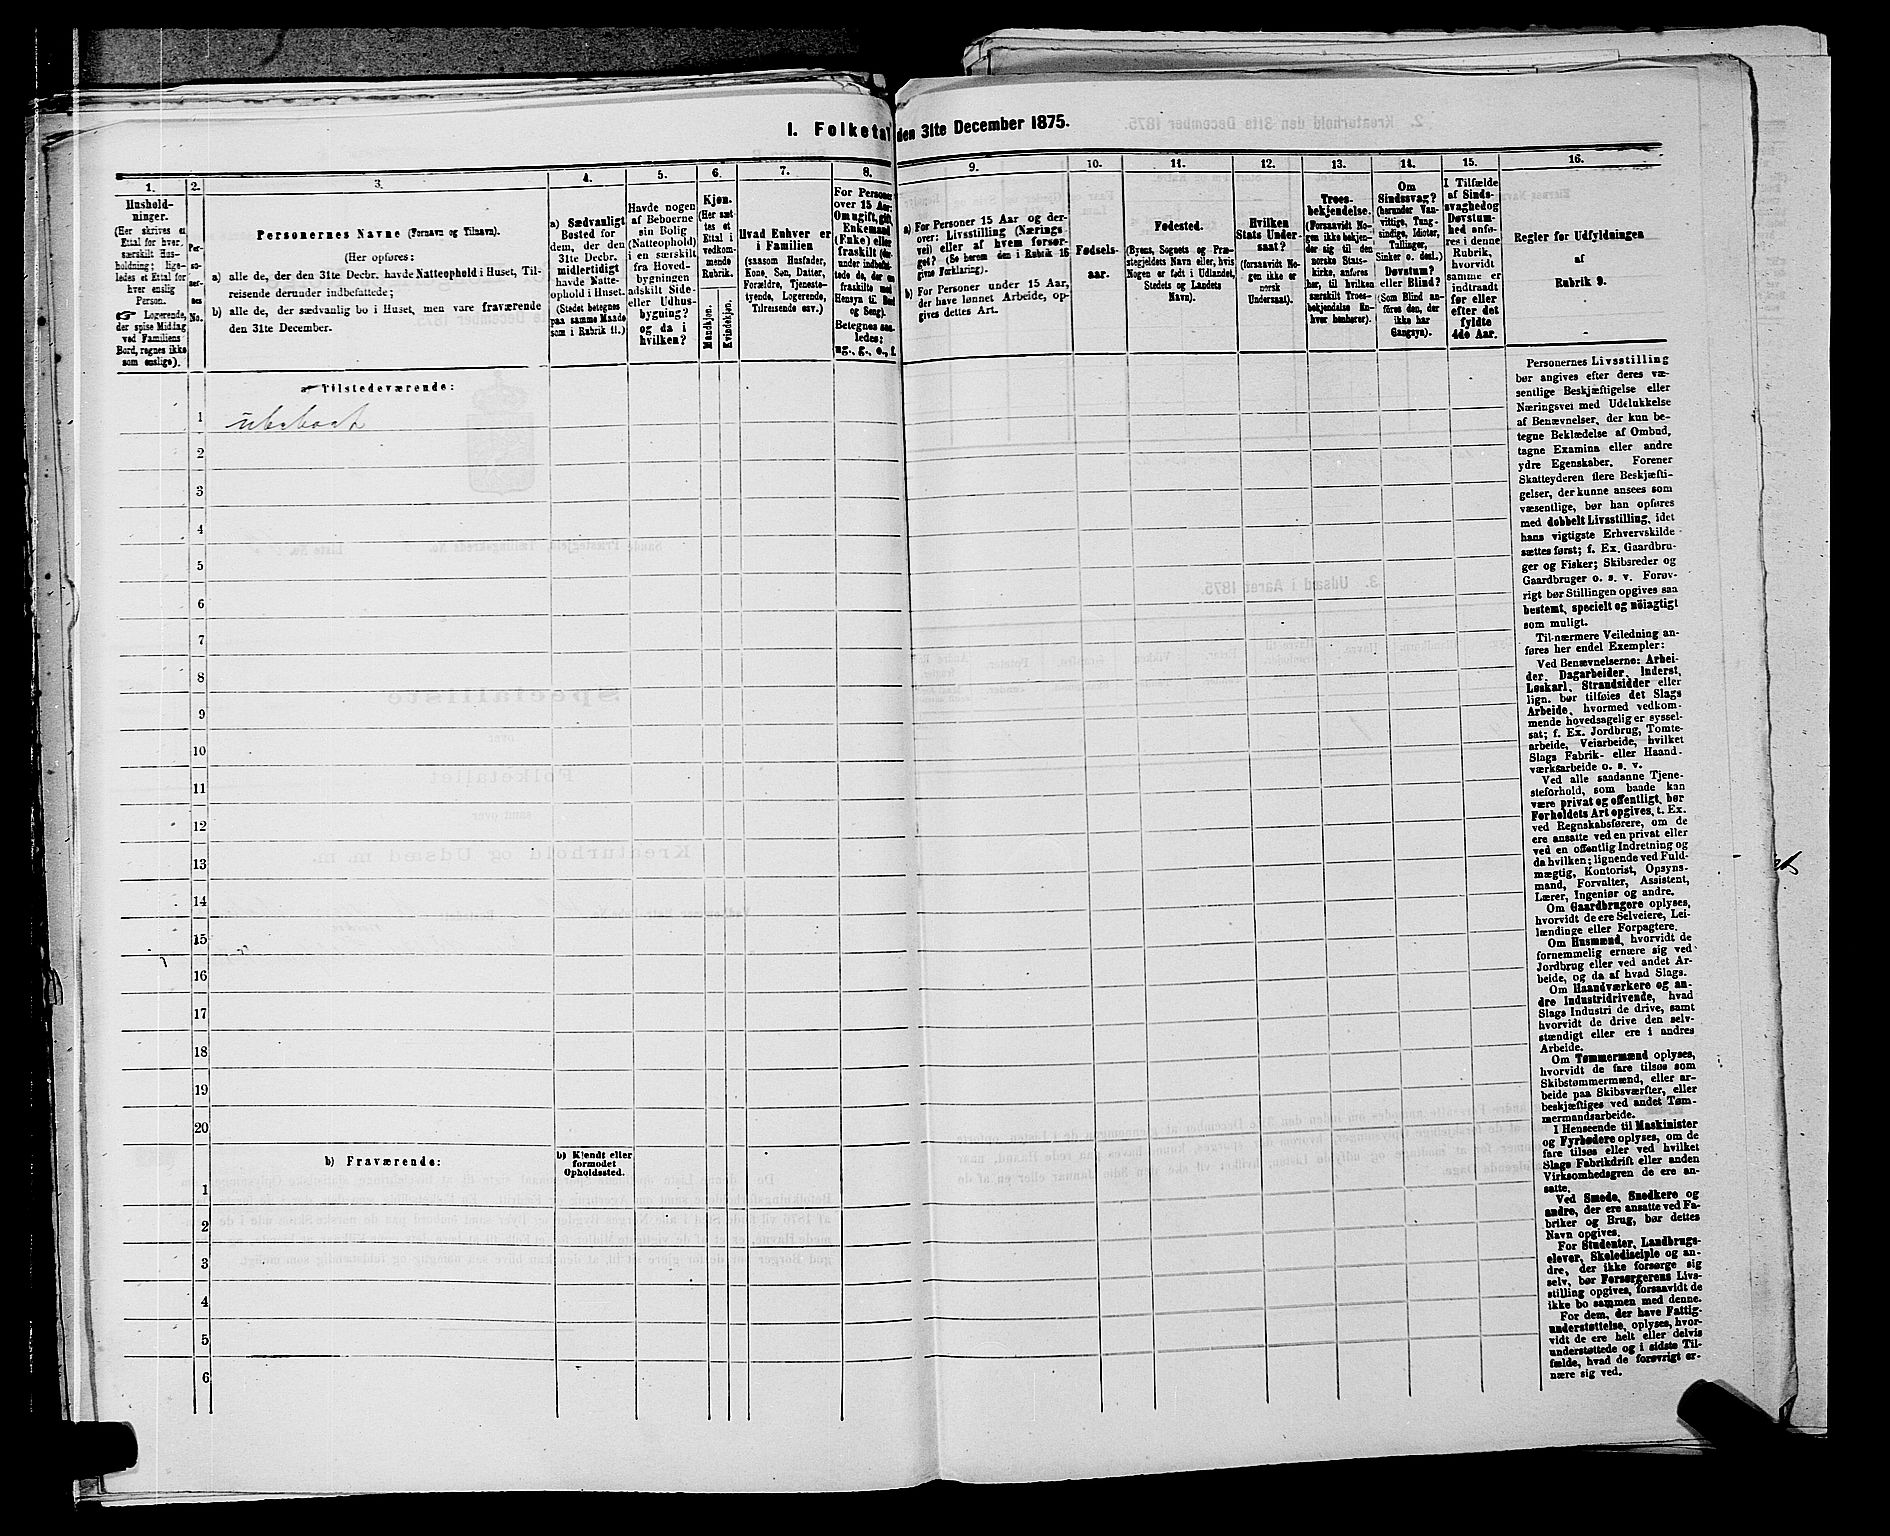 I. Folketal den 31te December 1875.
1.
Hushold-
ninger.
(Her skrives et
Ettal for hver
særskilt Hus-
holdning; lige-
ledes et Ettal for
hver enslig
Person.
☞ Logerende,
der spise Middag
ved Familiens
Bord, regnes ikke
som enslige).
2.
Per-
so-
ner-
nes
No.
3.
Personernes Navne (Fornavn og Tilnavn).
(Her opføres:
a) alle de, der den 31te Decbr. havde Natteophold i Huset, Til-
reisende derunder indbefattede;
b) alle de, der sædvanlig bo i Huset, men vare fraværende
den 31te December.
4.
a) Sædvanligt
Bosted for
dem, der den
31te Decbr.
midlertidigt
havde Natte-
ophold i Huset.
(Stedet betegnes
paa samme Maade
som i Rubrik 11.)
5.
Havde nogen
af Beboerne
sin Bolig
(Natteophold)
i en særskilt
fra Hoved-
bygningen
adskilt Side-
eller Udhus-
bygning?
og da i
hvilken?
6.
Kjøn.
(Her sæt-
tes et
Ettal i
vedkom-
mende
Rubrik.
Mandkjøn.
Kvindekjøn.
7.
Hvad Enhver er
i Familien
(saasom Husfader,
Kone, Søn, Datter,
Forældre, Tjeneste-
tyende, Logerende,
Tilreisende osv.)
8.
For Personer
over 15 Aar:
Om ugift, gift,
Enkemand
(Enke) eller
fraskilt (der-
under indbefat-
tede de, der ere
fraskilte med
Hensyn til Bord
og Seng).
Betegnes saa-
ledes:
ug., g., e., f.
9.
a) For Personer 15 Aar og der-
over: Livsstilling (Nærings-
vei) eller af hvem forsør-
get? (Se herom den i Rubrik 16
givne Forklaring).
b) For Personer under 15 Aar,
der have lønnet Arbeide, op-
gives dettes Art.
10.
Fødsels-
aar.
11.
Fødested.
(Byens, Sognets og Præ-
stegjeldets Navn eller, hvis
Nogen er født i Udlandet,
Stedets og Landets
Navn).
12.
Hvilken
Stats Under-
saat?
(forsaavidt No-
gen ikke er
norsk
Undersaat).
13.
Troes-
bekjendelse.
(Forsaavidt No-
gen ikke bekjen-
der sig til den
norske Stats-
kirke, anføres
her, til hvilken
særskilt Troes-
bekjendelse En-
hver henhører).
14.
Om
Sindssvag?
(herunder Van-
vittige, Tung-
sindige, Idioter,
Tullinger,
Sinker o. desl.)
Døvstum?
eller Blind?
(Som Blind an-
føres den, der
ikke har
Gangsyn).
15.
I Tilfælde
af Sinds-
svaghed og
Døvstum-
hed anfø-
res i denne
Rubrik,
hvorvidt
samme er
indtraadt
før eller
efter det
fyldte
4de Aar.
16.
Regler for Udfyldningen
af
Rubrik 9.
a. Tilstedeværende:
1 ubeboet
2
3
4
5
6
7
8
9
10
11
12
13
14
15
16
17
18
19
20
b) Fraværende:
b) Kjendt eller
formodet
Opholdssted.
1
2
3
4
5
6
Personernes Livsstilling
bør angives efter deres væ-
sentlige Beskjæftigelse eller
Næringsvei med Udelukkelse
af Benævnelser, der kun be-
tegne Beklædelse af Ombud,
tagne Examina eller andre
ydre Egenskaber. Forener
Skatteyderen flere Beskjæfti-
gelser, der kunne ansees som
væsentlige, bør han opføres
med dobbelt Livsstilling, idet
hans vigtigste Erhvervskilde
sættes først; f. Ex. Gaardbru-
ger og Fisker; Skibsreder og
Gaardbruger o. s. v. Forøv-
rigt bør Stillingen opgives saa
bestemt, specielt og nøiagtigt
som muligt.
Til nærmere Veiledning an-
føres her endel Exempler:
Ved Benævnelserne: Arbei-
der, Dagarbeider, Inderst,
Løskarl, Strandsidder eller
lign. bør tilføies det Slags
Arbeide, hvormed vedkom-
mende hovedsagelig er syssel-
sat; f. Ex. Jordbrug, Tomte-
arbeide, Veiarbeide, hvilket
Slags Fabrik- eller Haand-
værksarbeide o. s. v.
Ved alle saadanne Tjene-
steforhold, som baade kan
være privat og offentligt, bør
Forholdets Art opgives, t. Ex.
ved Regnskabsførere, om de
ere ansatte ved en privat eller
ved en offentlig Indretning og
da hvilken; lignende ved Fuld-
mægtig, Kontorist, Opsyns-
mand, Forvalter, Assistent,
Lærer, Ingeniør og andre.
Om Gaardbrugere oplyses,
hvorvidt de ere Selveiere, Lei-
lændinge eller Forpagtere.
Om Husmænd, hvorvidt de
fornemmelig ernære sig ved
Jordbrug eller ved andet Ar-
beide, og da af hvad Slags.
Om Haandværkere og an-
dre Industridrivende, hvad
Slags Industri de drive, samt
hvorvidt de drive den selv-
stændigt eller ere i andres
Arbeide.
Om Tømmermænd oplyses,
hvorvidt de fare tilsøs som
Skibstømmermænd, eller ar-
beide paa Skibsværfter, eller
beskjæftiges ved andet Tøm-
mermandsarbeide.
I Henseende til Maskinister
og Fyrbødere oplyses, om de
fare tilsøs eller ved hvilket
Slags Fabrikdrift eller anden
Virksomhedsgren de ere an-
satte.
Ved Smede, Snedkere og
andre, der ere ansatte ved Fa-
briker og Brug, bør dettes
Navn opgives.
For Studenter, Landbrugs-
elever, Skoledisciple og an-
dre, der ikke forsørge sig
selv, bør Forsørgerens Livs-
stilling opgives, forsaavidt de
ikke bo sammen med denne.
For dem, der have Fattig-
understøttelse, oplyses, hvor-
vidt de ere helt eller delvis
understøttede og i sidste Til-
fælde, hvad de forøvrigt er-
nære sig ved.